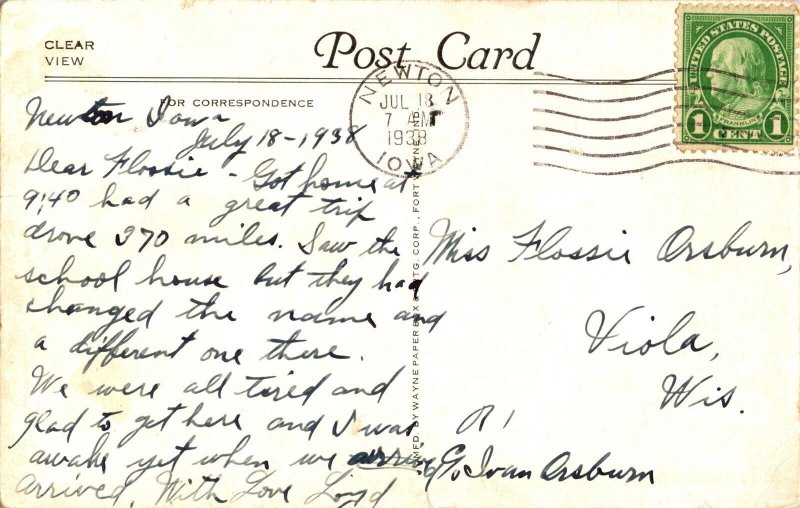 CLEAR
VIEW
Post Card
FOR CORRESPONDENCE
NEWTON
JUL 18
7 AM
1938
IOWA
UNITED STATES POSTAGE
FRANKLIN
1 CENT 1
Newton Iowa
July 18-1938
Dear Flossie - Got home at
9:40 had a great trip
drove 370 miles. Saw the
school house but they had
changed the name and
a different one there.
We were all tired and
glad to get here and I was
awake yet when we
arrived. With Love Loyd
MFD. BY WAYNE PAPER BOX & PTG. CORP., FORT WAYNE, IND.
Miss Flossie Orsburn,
Viola,
Wis.
R 1
c/o Ivan Orsburn